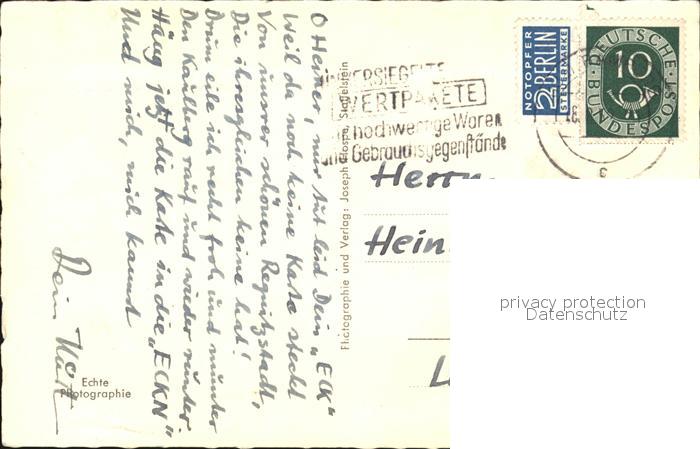 O Heiner, mir tut leid Dein „ECK“
Weil da noch keine Karte steckt
Von unsrer schönen Regnitzstadt,
Die ihresgleichen keine hat!
Drum eile ich recht froh und munter
Den Kaulberg rauf und wieder runter.
Häng jetzt die Karte in die „ECKN“
Und mich, mich kannst
Dein
Echte
Photographie
Photographie und Verlag: Joseph Klospe, Staffelstein
UNVERSIEGELTE
WERTPAKETE
hochwertige Waren
und Gebrauchsgegenstände
NOTOPFER
2 BERLIN
STEUERMARKE
DEUTSCHE
10
BUNDESPOST
c
Herrn
Hein
privacy protection
Datenschutz